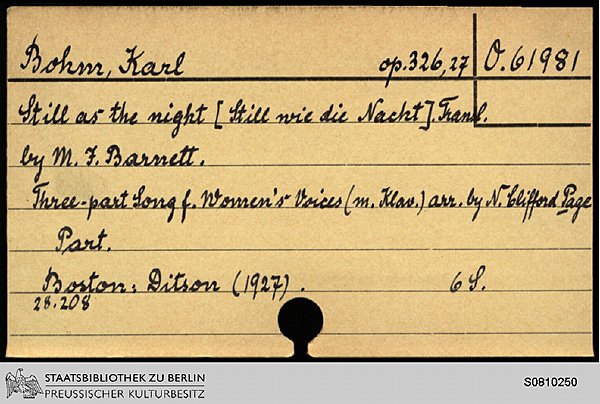 Bohm, Karl op. 326, 27 O. 61981
Still as the night [Still wie die Nacht]. Transl.
by M. J. Barnett.
Three-part Song f. Women's Voices (m. Klav.) arr. by N. Clifford Page
Part.
Boston: Ditson (1927). 6 S.
28.208
STAATSBIBLIOTHEK ZU BERLIN
PREUSSISCHER KULTURBESITZ
S0810250